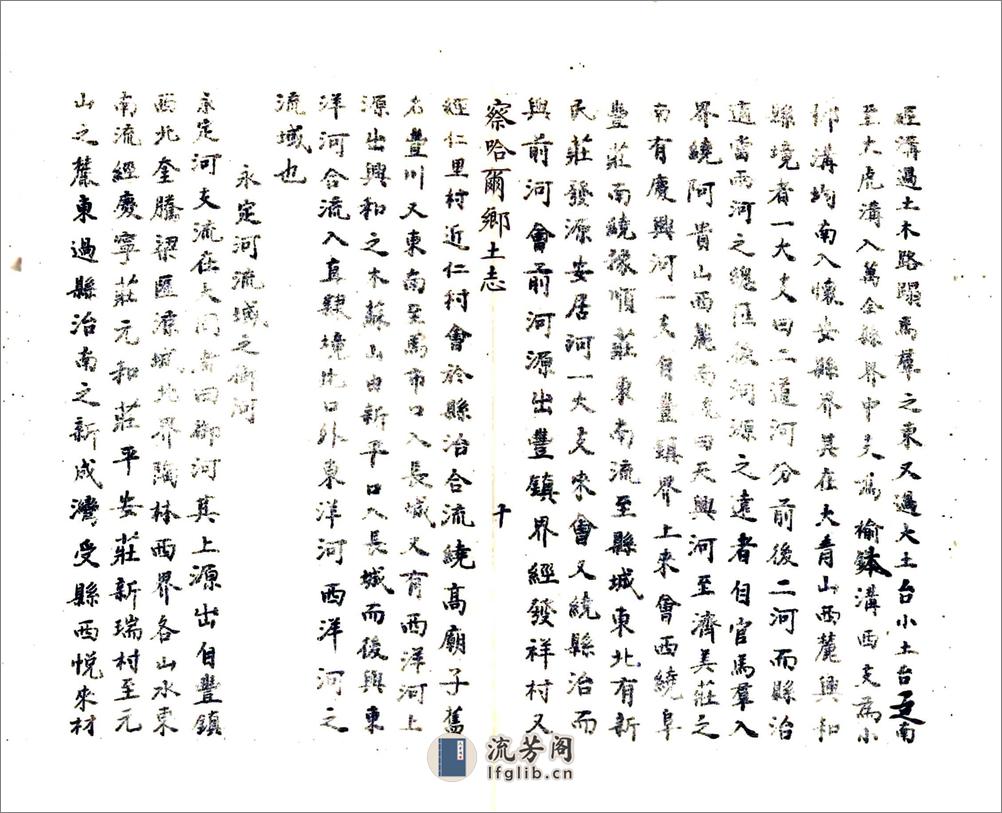 莊溝過土木路蹋馬羣之東又過大土台小土台迤南
至大虎溝入萬全縣界中支爲榆鉢溝西支爲小
邨溝均南入懷安縣界其在大青山西麓興和
縣境者一大支曰二道河分前後二河而縣治
適當兩河之總匯後河源之遠者自官馬羣入
界繞阿貴山西麓南流曰天興河至濟美莊之
南有慶興河一支自豐鎮界上來會西繞阜
豐莊南繞豫順莊東南流至縣城東北有新
民莊發源安居河一大支來會又繞縣治而
與前河會前河源出豐鎮界經發祥村又
察哈爾鄉土志
十
經仁里村近仁村會於縣治合流繞高廟子舊
名豐川又東南至馬市口入長城又有西洋河上
源出興和之木蘇山由新平口入長城而後與東
洋河合流入直隸境此口外東洋河西洋河之
流域也
永定河流域之御河
永定河支流在大同者曰御河其上源出自豐鎮
西北奎騰梁匯涼城北界陶林西界各山水東
南流經慶寧莊元和莊平安莊新瑞村至元
山之麓東過縣治南之新成灣受縣西悅來材
流芳阁
lfglib.cn